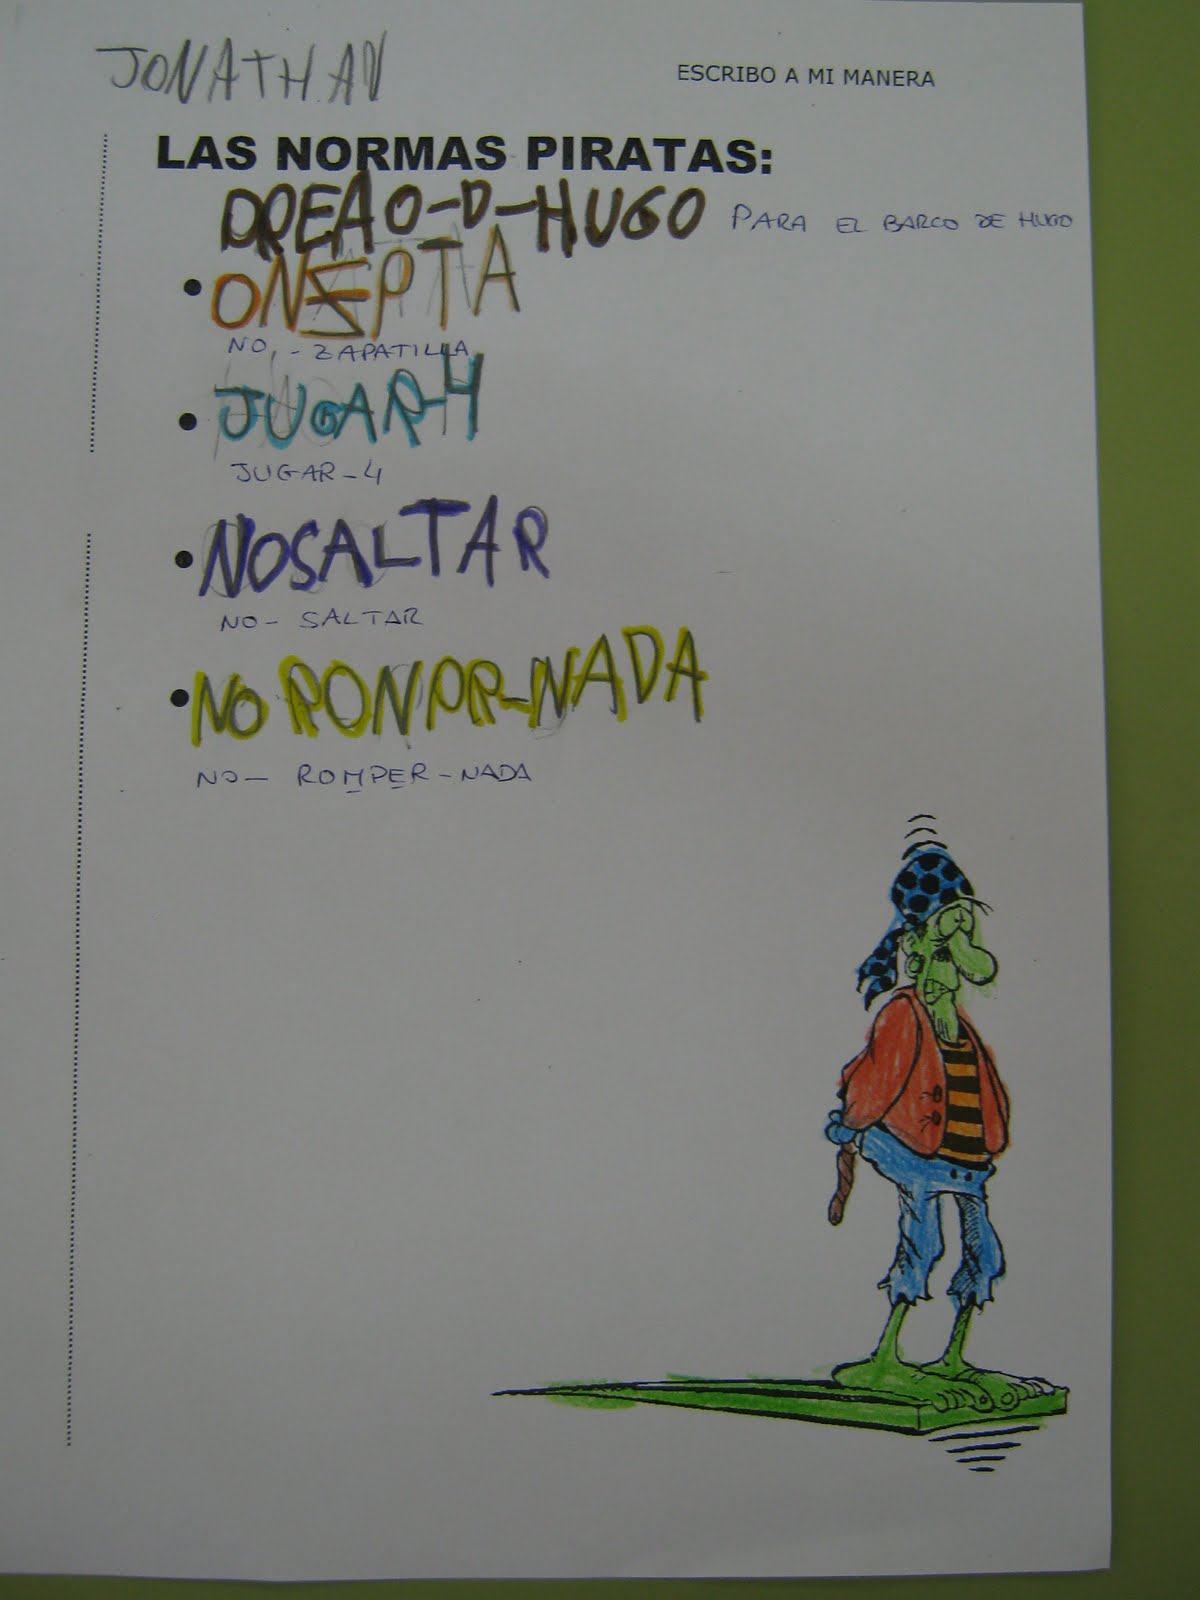 JONATHAN
ESCRIBO A MI MANERA
LAS NORMAS PIRATAS:
DREAO-D-HUGO PARA EL BARCO DE HUGO
• ONZPTA
NO - ZAPATILLA
• JUGAR-4
JUGAR-4
• NOSALTAR
NO- SALTAR
• NO RONPR-NADA
NO- ROMPER-NADA